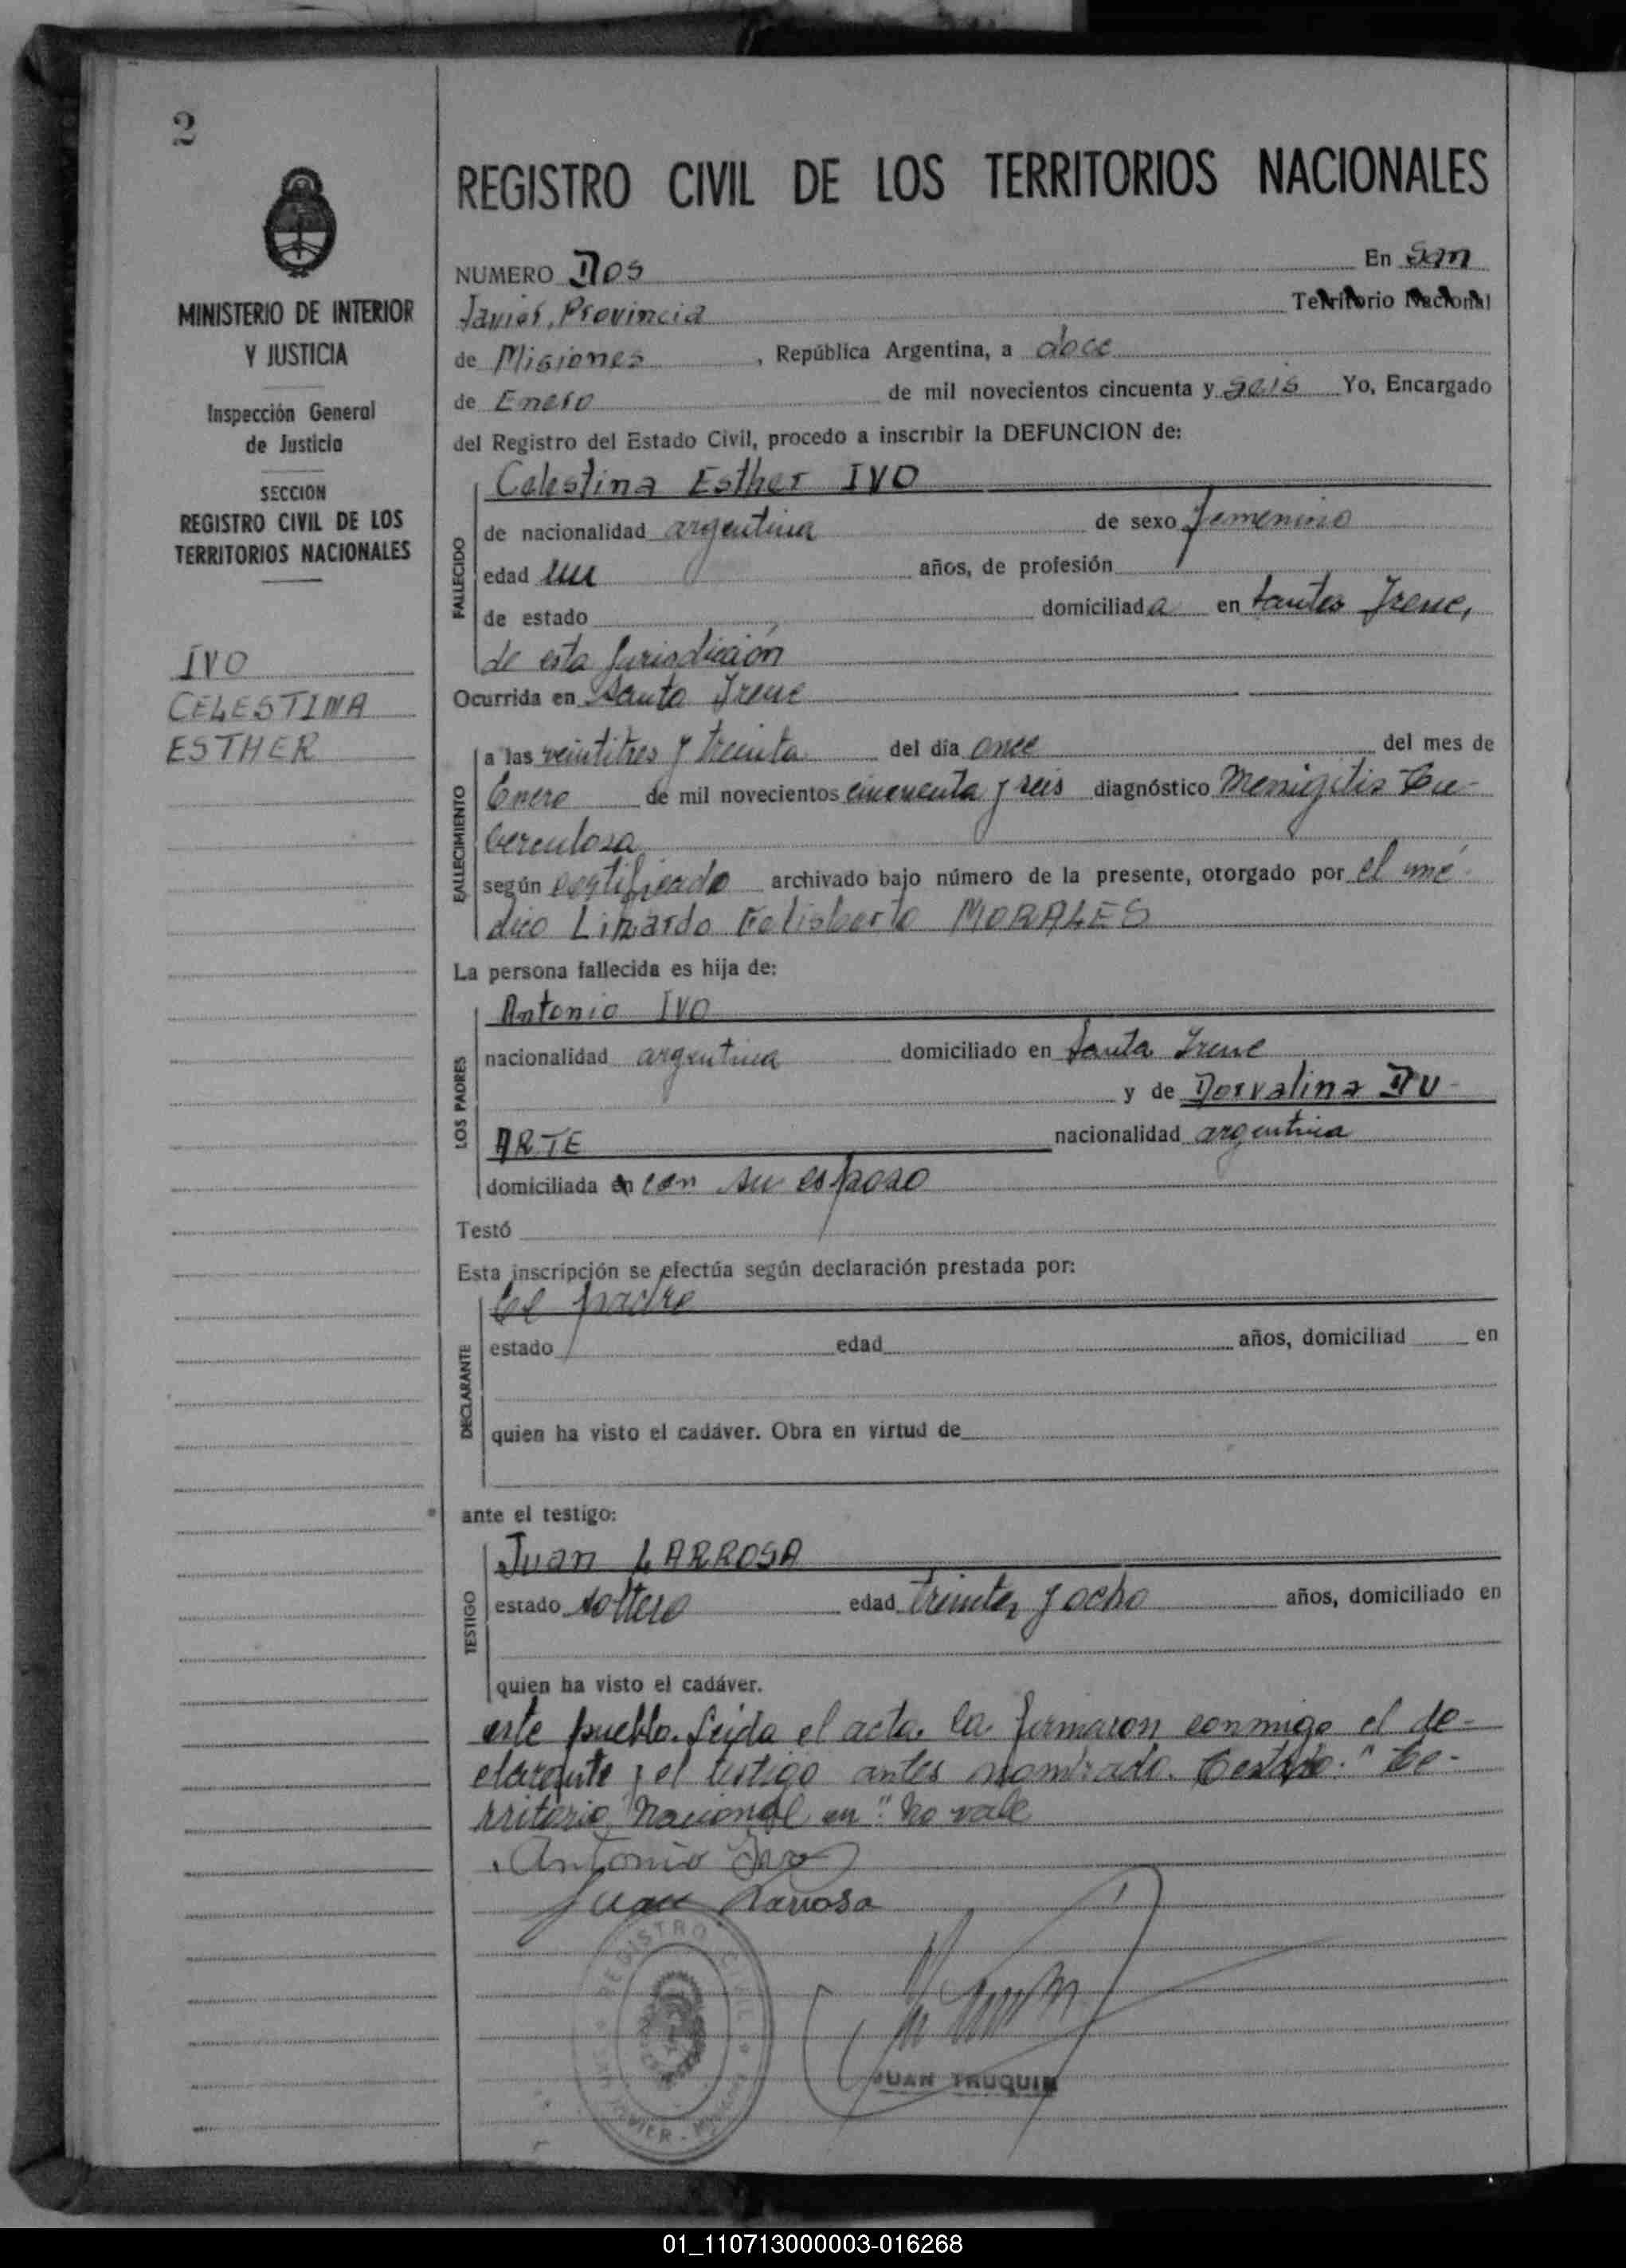 2
MINISTERIO DE INTERIOR
Y JUSTICIA
Inspección General
de Justicia
SECCION
REGISTRO CIVIL DE LOS
TERRITORIOS NACIONALES
IVO
CELESTINA
ESTHER
REGISTRO CIVIL DE LOS TERRITORIOS NACIONALES
NUMERO Dos En San
Javier, Provincia Territorio Nacional
de Misiones, República Argentina, a doce
de Enero de mil novecientos cincuenta y seis Yo, Encargado
del Registro del Estado Civil, procedo a inscribir la DEFUNCION de:
Celestina Esther IVO
FALLECIDO
de nacionalidad argentina de sexo femenino
edad un años, de profesión
de estado domiciliada en Santa Irene,
de esta Jurisdicción
Ocurrida en Santa Irene
FALLECIMIENTO
a las veintitres y treinta del día once del mes de
Enero de mil novecientos cincuenta y seis diagnóstico Menigitis tu-
berculosa
según certificado archivado bajo número de la presente, otorgado por el mé-
dico Linardo Felisberto MORALES
La persona fallecida es hija de:
LOS PADRES
Antonio IVO
nacionalidad argentina domiciliado en Santa Irene
y de Dorvalina DU-
ARTE nacionalidad argentina
domiciliada en con su esposo
Testó
Esta inscripción se efectúa según declaración prestada por:
DECLARANTE
el padre
estado edad años, domiciliad en
quien ha visto el cadáver. Obra en virtud de
ante el testigo:
TESTIGO
Juan LARROSA
estado soltero edad treinta y ocho años, domiciliado en
quien ha visto el cadáver.
este pueblo. Leida el acta. la firmaron conmigo el de-
clarante y el testigo antes nombrado. Testado: "Te-
rritorio Nacional en" No vale
Antonio Ivo
Juan Larrosa
REGISTRO CIVIL
SAN JAVIER - MISIONES
JUAN TRUQUIN
01_110713000003-016268